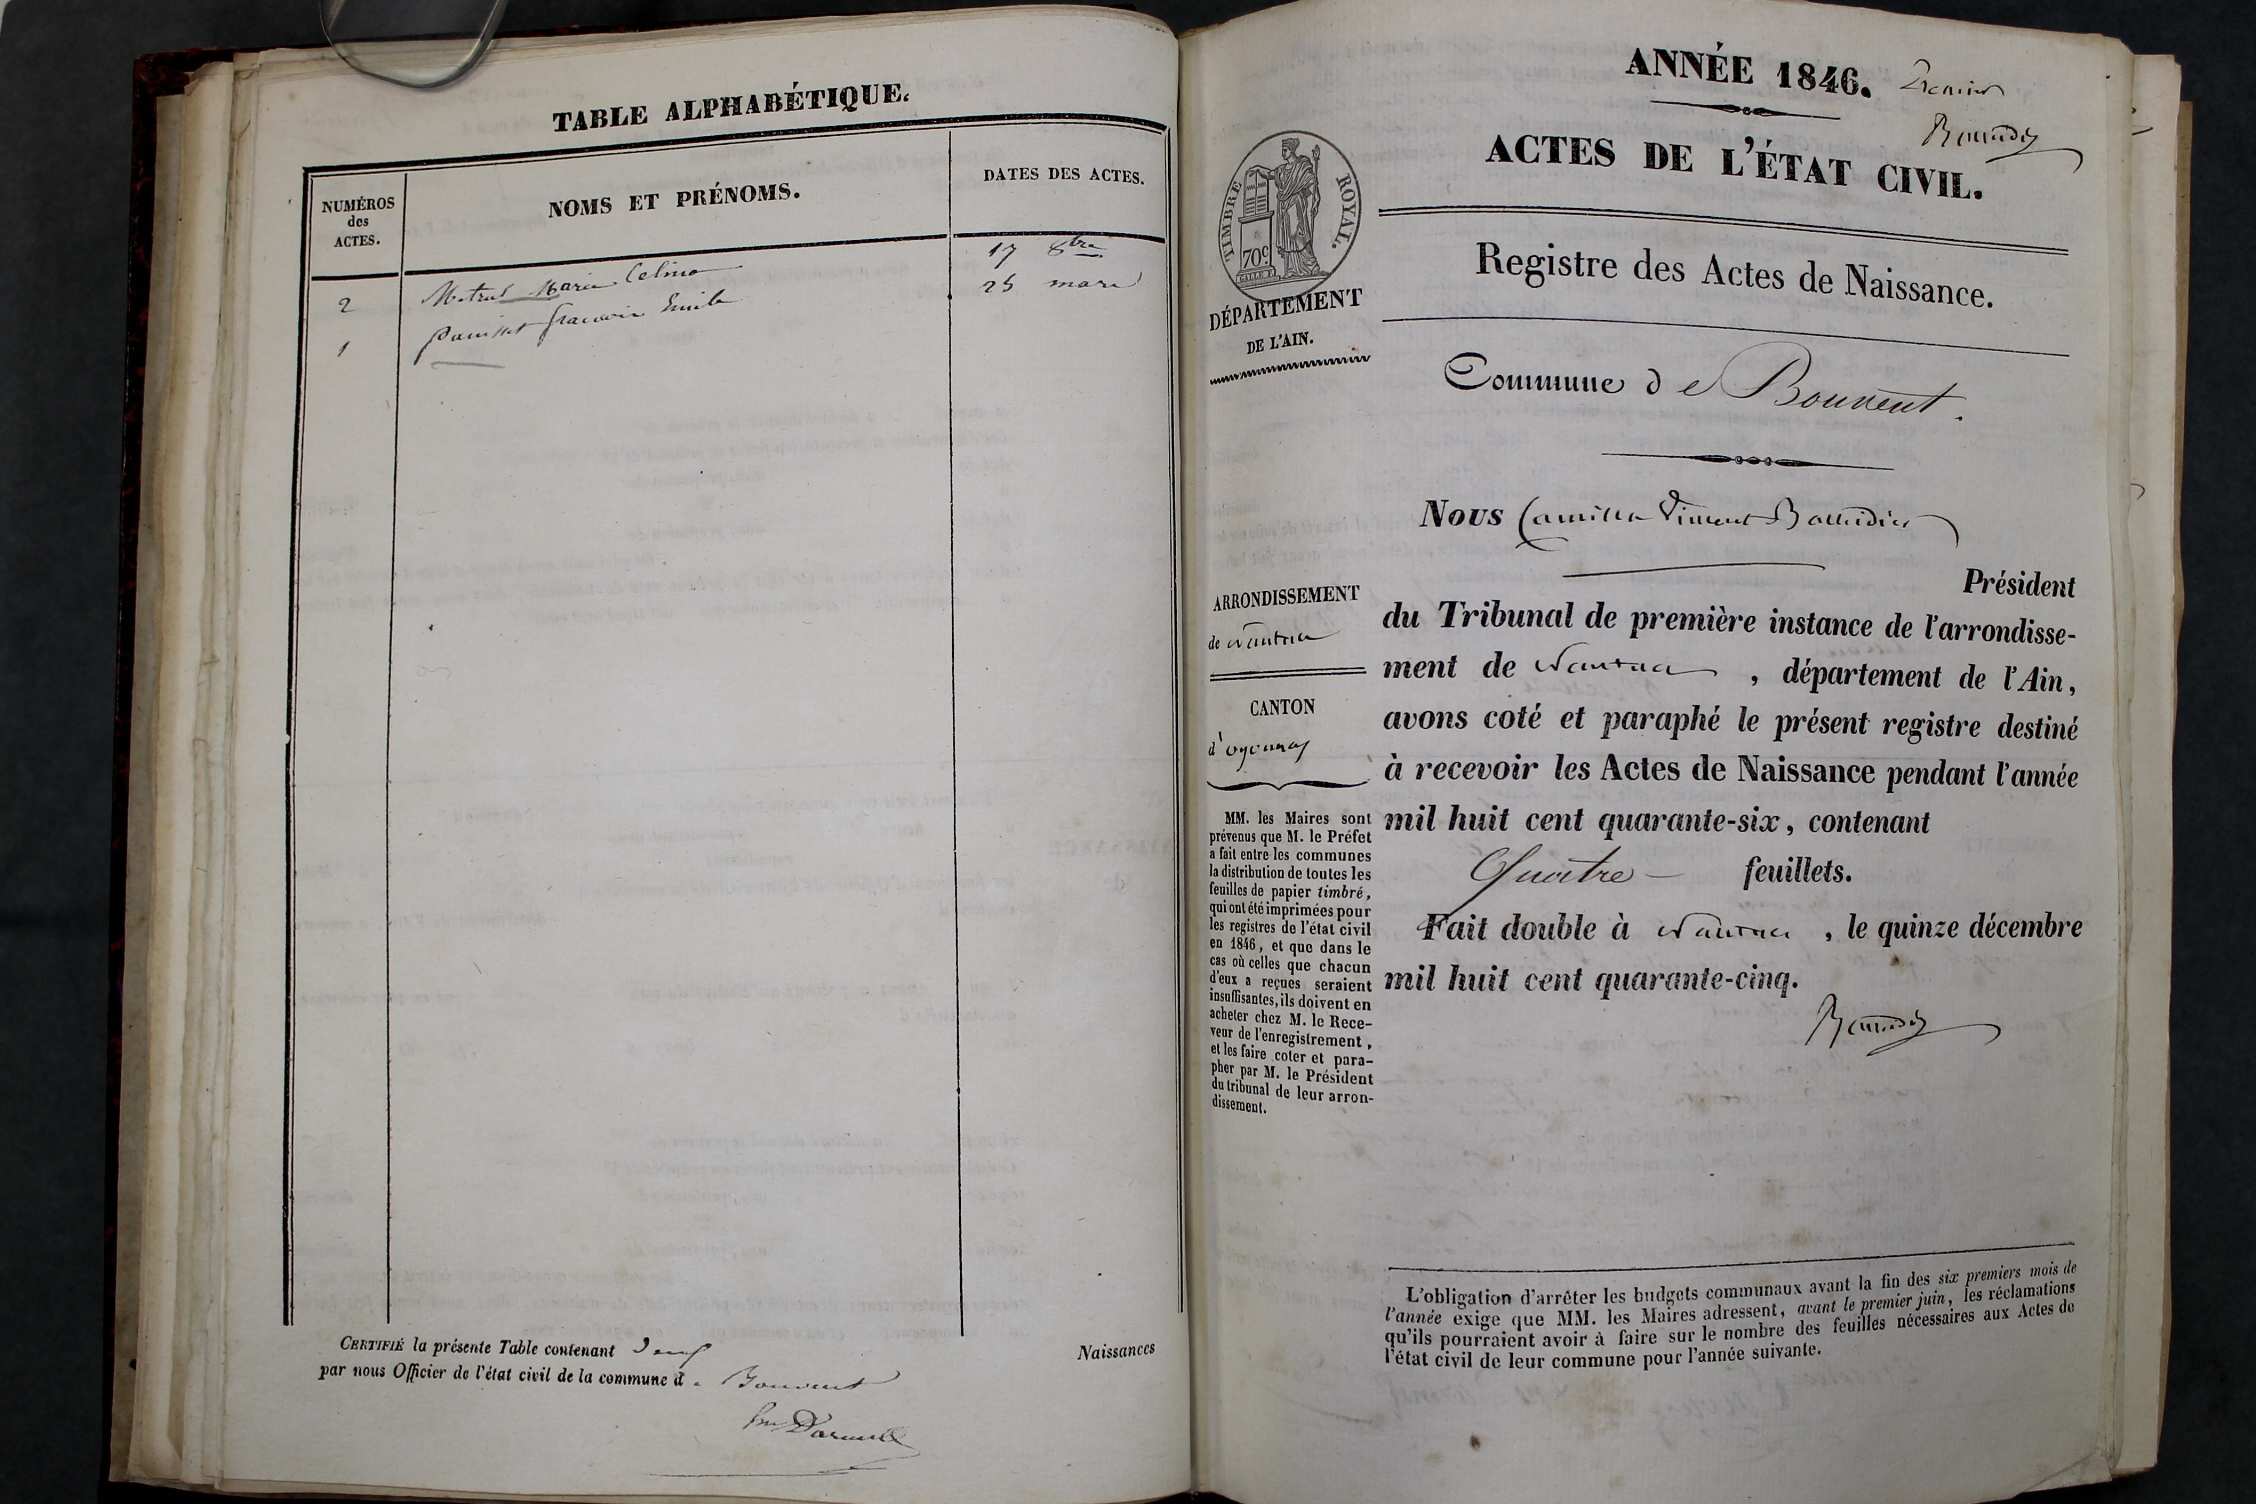 TABLE ALPHABÉTIQUE.
NUMÉROS
des
ACTES.
NOMS ET PRÉNOMS.
DATES DES ACTES.
2 Marie Celina 17 8bre
1 Emile 25 mars
CERTIFIÉ la présente Table contenant Naissances
par nous Officier de l'état civil de la commune d e Bouvent
ANNÉE 1846. Premier
ACTES DE L'ÉTAT CIVIL.
TIMBRE ROYAL.
70c
DÉPARTEMENT
DE L'AIN.
Registre des Actes de Naissance.
Commune d e Bouvent.
Nous Camille Vincent
Président
ARRONDISSEMENT
de Nantua
CANTON
d'oyonnax
du Tribunal de première instance de l'arrondisse-
ment de Nantua , département de l'Ain,
avons coté et paraphé le présent registre destiné
à recevoir les Actes de Naissance pendant l'année
mil huit cent quarante-six, contenant
Quatre feuillets.
Fait double à Nantua , le quinze décembre
mil huit cent quarante-cinq.
MM. les Maires sont
prévenus que M. le Préfet
a fait entre les communes
la distribution de toutes les
feuilles de papier timbré,
qui ont été imprimées pour
les registres de l'état civil
en 1846, et que dans le
cas où celles que chacun
d'eux a reçues seraient
insuffisantes, ils doivent en
acheter chez M. le Rece-
veur de l'enregistrement,
et les faire coter et para-
pher par M. le Président
du tribunal de leur arron-
dissement.
L'obligation d'arrêter les budgets communaux avant la fin des six premiers mois de
l'année exige que MM. les Maires adressent, avant le premier juin, les réclamations
qu'ils pourraient avoir à faire sur le nombre des feuilles nécessaires aux Actes de
l'état civil de leur commune pour l'année suivante.